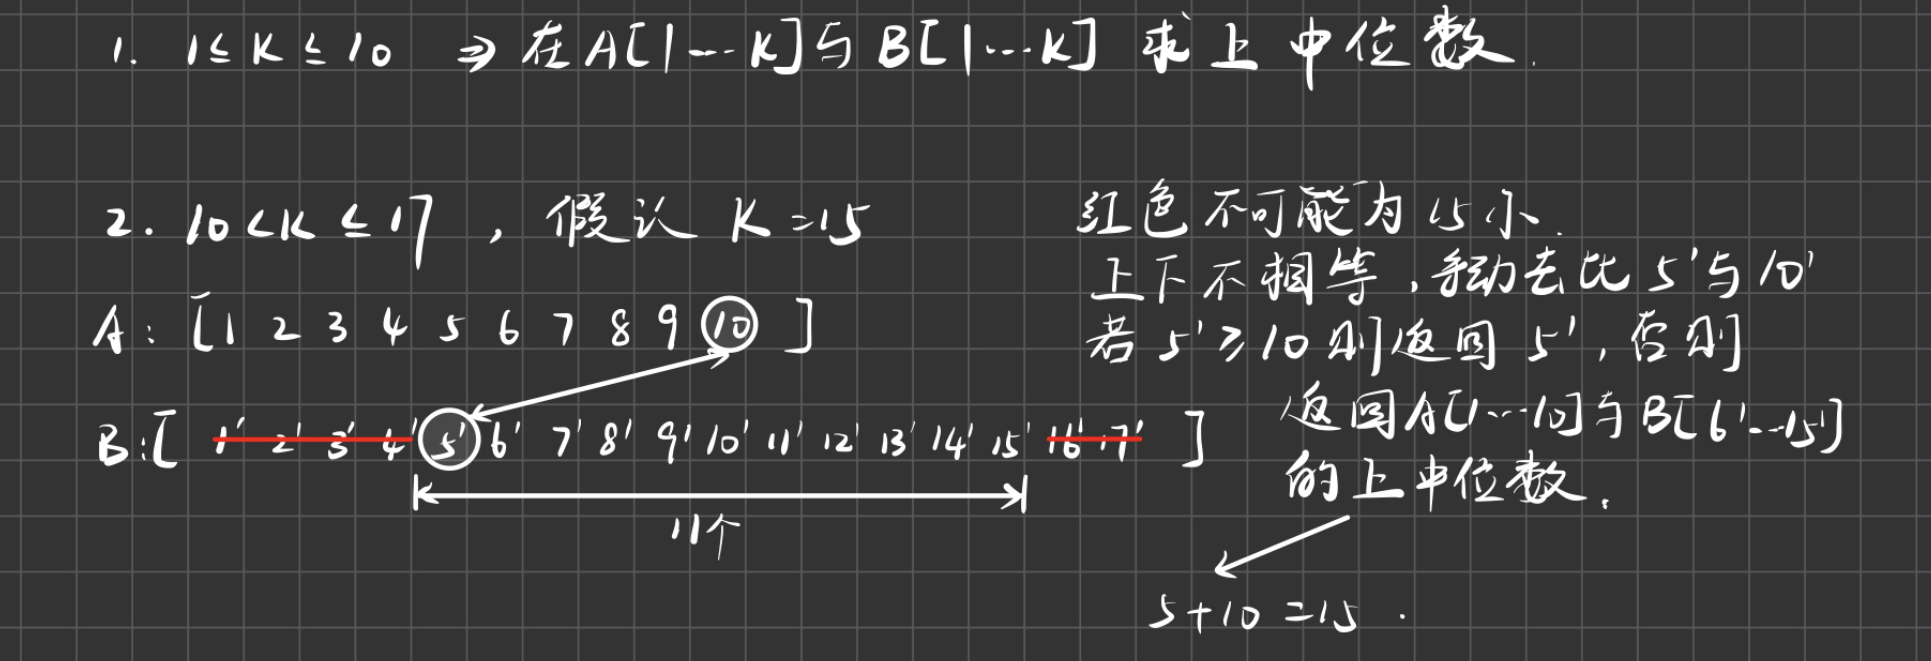 1. 1≤K≤10 ⇒ 在A[1…K]与B[1…K] 求上中位数.
2. 10<K≤17 , 假设 K=15
A: [1 2 3 4 5 6 7 8 9 10 ]
B:[ 1' 2' 3' 4' 5' 6' 7' 8' 9' 10' 11' 12' 13' 14' 15' 16' 17' ]
11个
红色不可能为15小.
上下不相等,手动去比5'与10'
若5'≥10则返回5',否则
返回A[1…10]与B[6'…15']
的上中位数.
5+10=15.